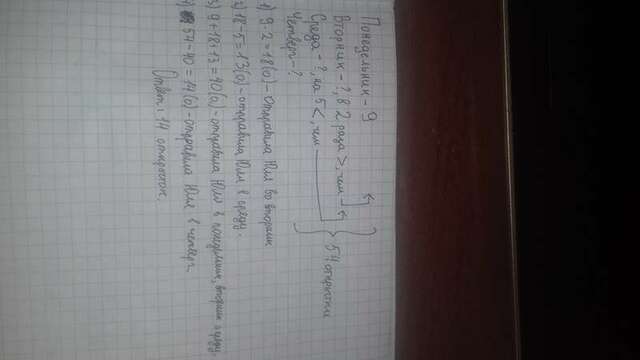 Понедельник - 9
Вторник - ?, в 2 раза >, чем
Среда - ?, на 5 <, чем
Четверг - ?
54 открытки
1) 9·2=18(о) - отправила Юля во вторник
2) 18-5=13(о) - отправила Юля в среду.
3) 9+18+13=40(о) - отправила Юля в понедельник, вторник и среду.
4) 54-40=14(о) - отправила Юля в четверг.
Ответ: 14 открыток.